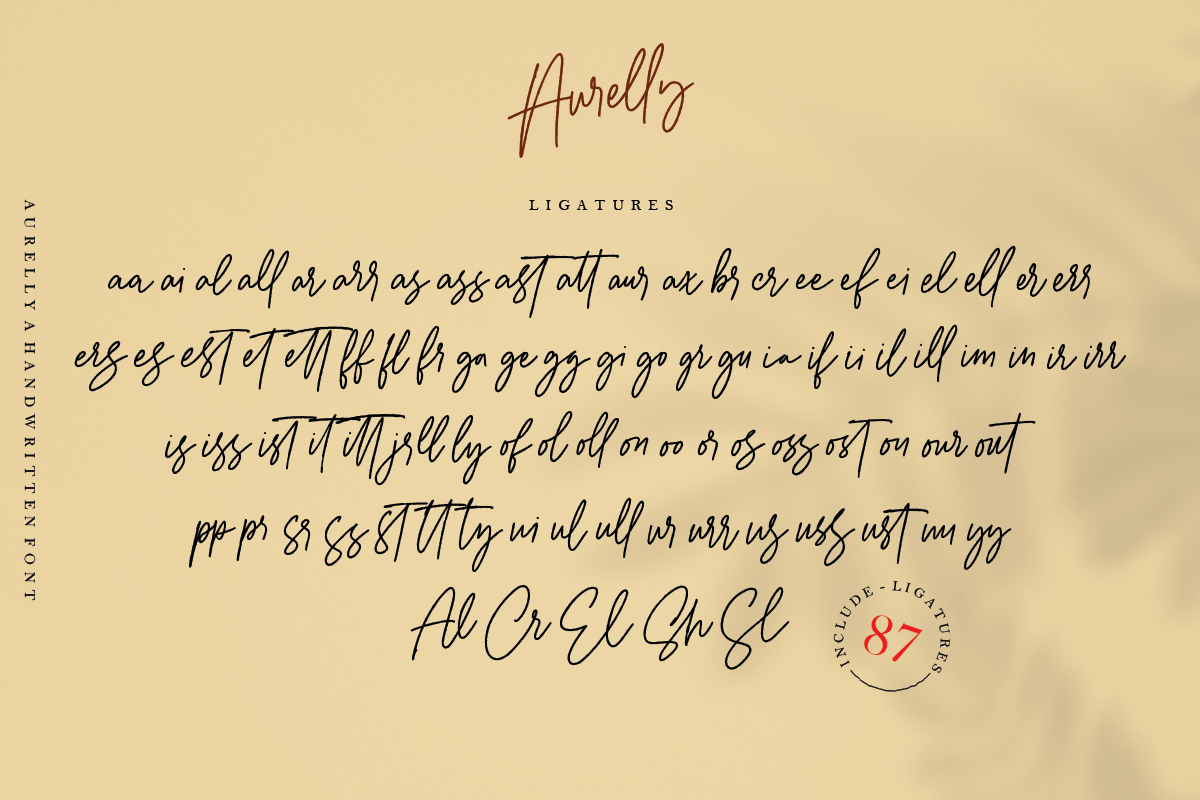 Aurelly
LIGATURES
AURELLY A HANDWRITTEN FONT
aa ai al all ar arr as ass ast att aur ax br cr ee ef ei el ell er err
ers es est et ett ff fl fr ga ge gg gi go gr gu ia if ii il ill im in ir irr
is iss ist it itt jr ll ly of ol oll on oo or os oss ost ou our out
pp pr sr ss st tt ty ui ul ull ur urr us uss ust uu yy
Al Cr El Sh Sl
INCLUDE - LIGATURES
87